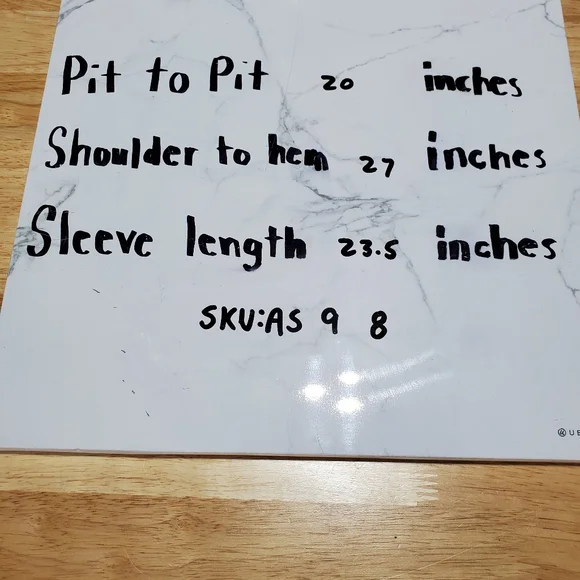 Pit to Pit 20 inches
Shoulder to hem 27 inches
Sleeve length 23.5 inches
SKU:AS 9 8